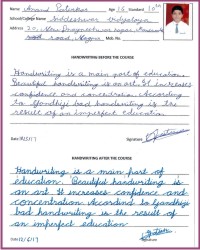 Name Anand Palaskar Age 16 Standard 10th
School/College Name Siddheshwar Vidyalaya
Address
road, Mob. No.
HANDWRITING BEFORE THE COURSE
Handwriting is a main part of education.
Beautiful handwriting is an art. It increases
confidence and concentration. According
to Gandhiji bad handwriting is the
result of an imperfect education.
Date Signature
HANDWRITING AFTER THE COURSE
Handwriting is a main part of
education. Beautiful handwriting is
an art. It increases confidence and
concentration. According to Gandhiji
bad handwriting is the result of
an imperfect education
Date 12/6/17 Signature